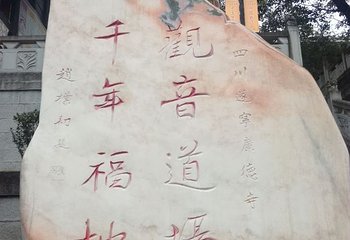 四川遂寧廣德寺
觀音道場
千年福地
趙樸初